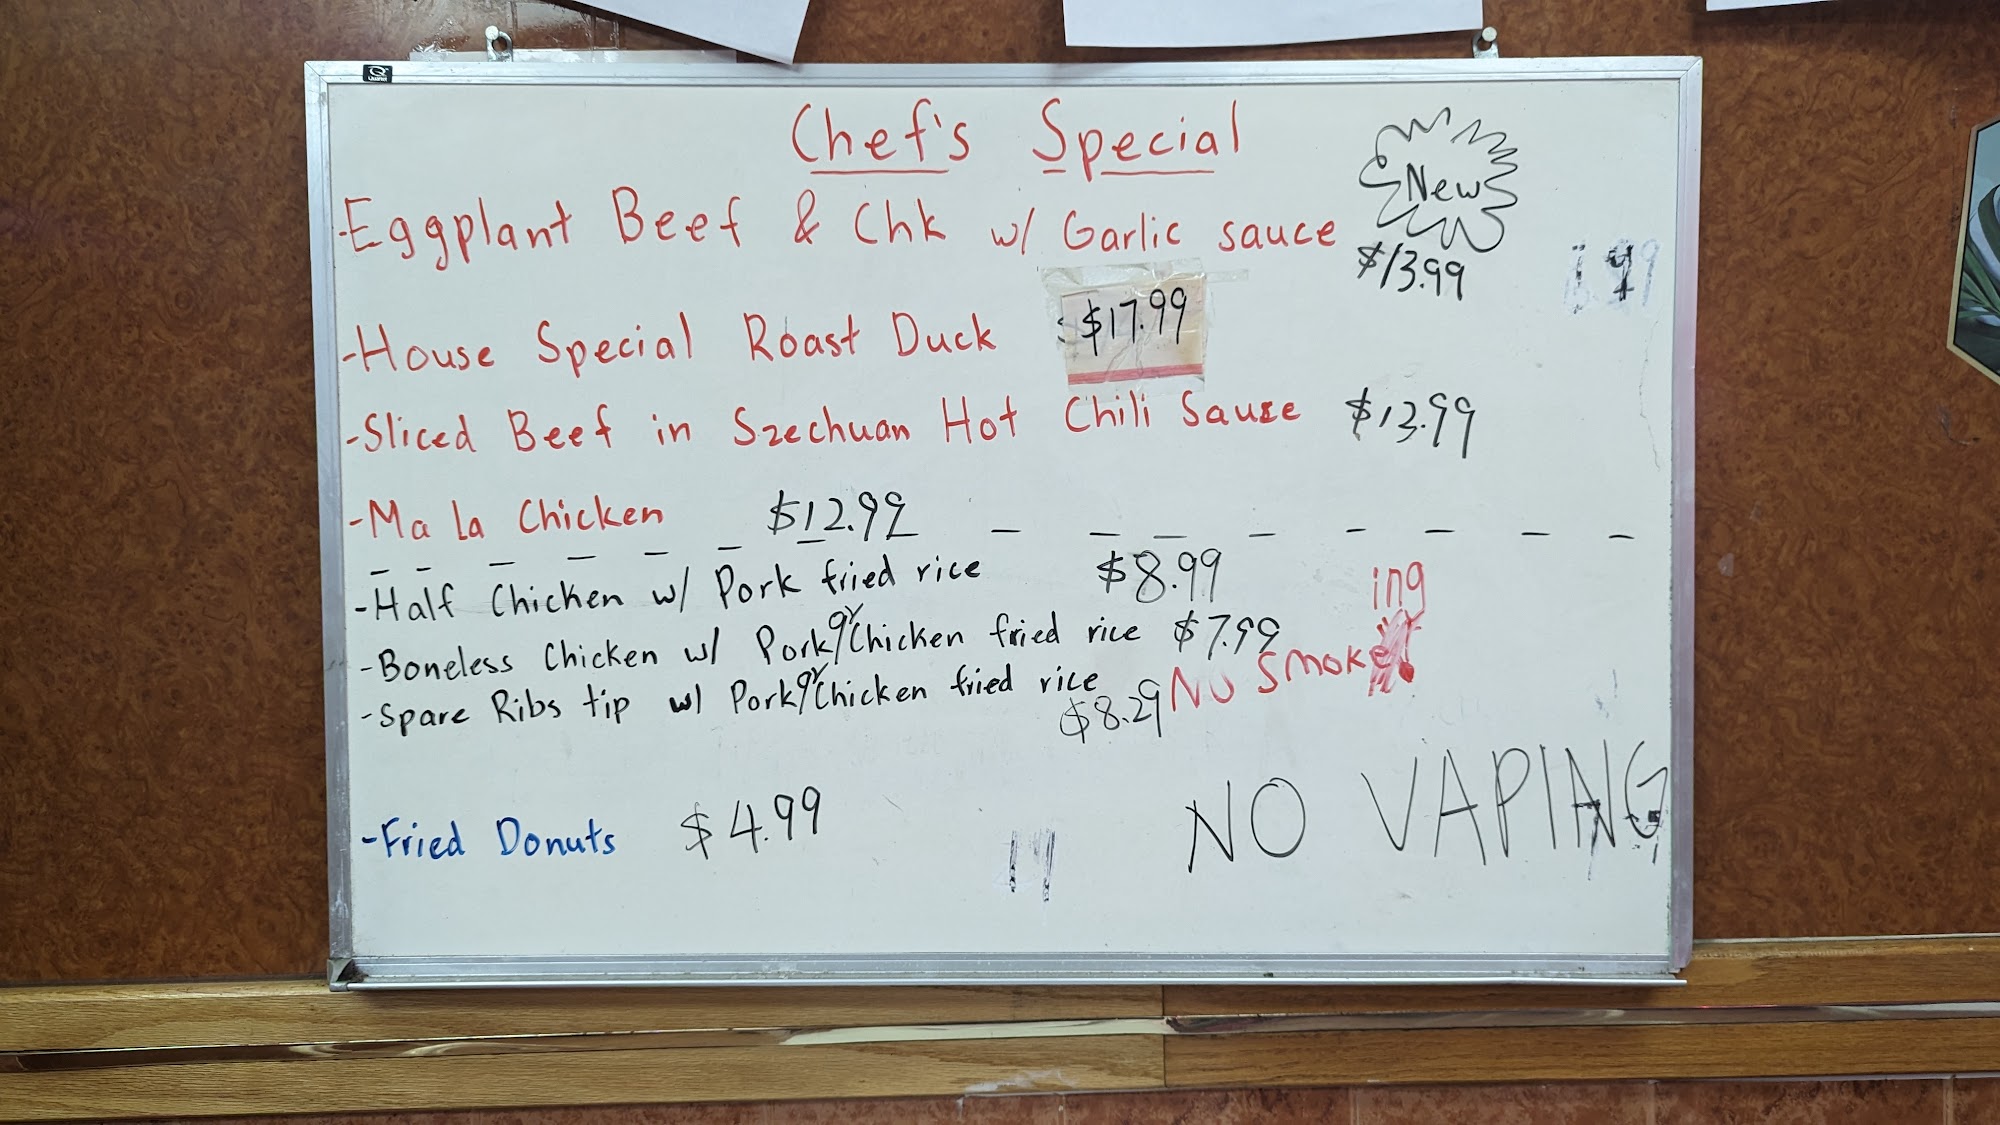 Quartet
Chef's Special
New
-Eggplant Beef & Chk w/ Garlic sauce $13.99
-House Special Roast Duck $17.99
-Sliced Beef in Szechuan Hot Chili Sause $13.99
-Ma La Chicken $12.99
-Half Chicken w/ Pork fried rice $8.99
-Boneless Chicken w/ Pork or Chicken fried rice $7.99
-Spare Ribs tip w/ Pork or Chicken fried rice $8.29
No Smokeing
NO VAPING
-Fried Donuts $4.99